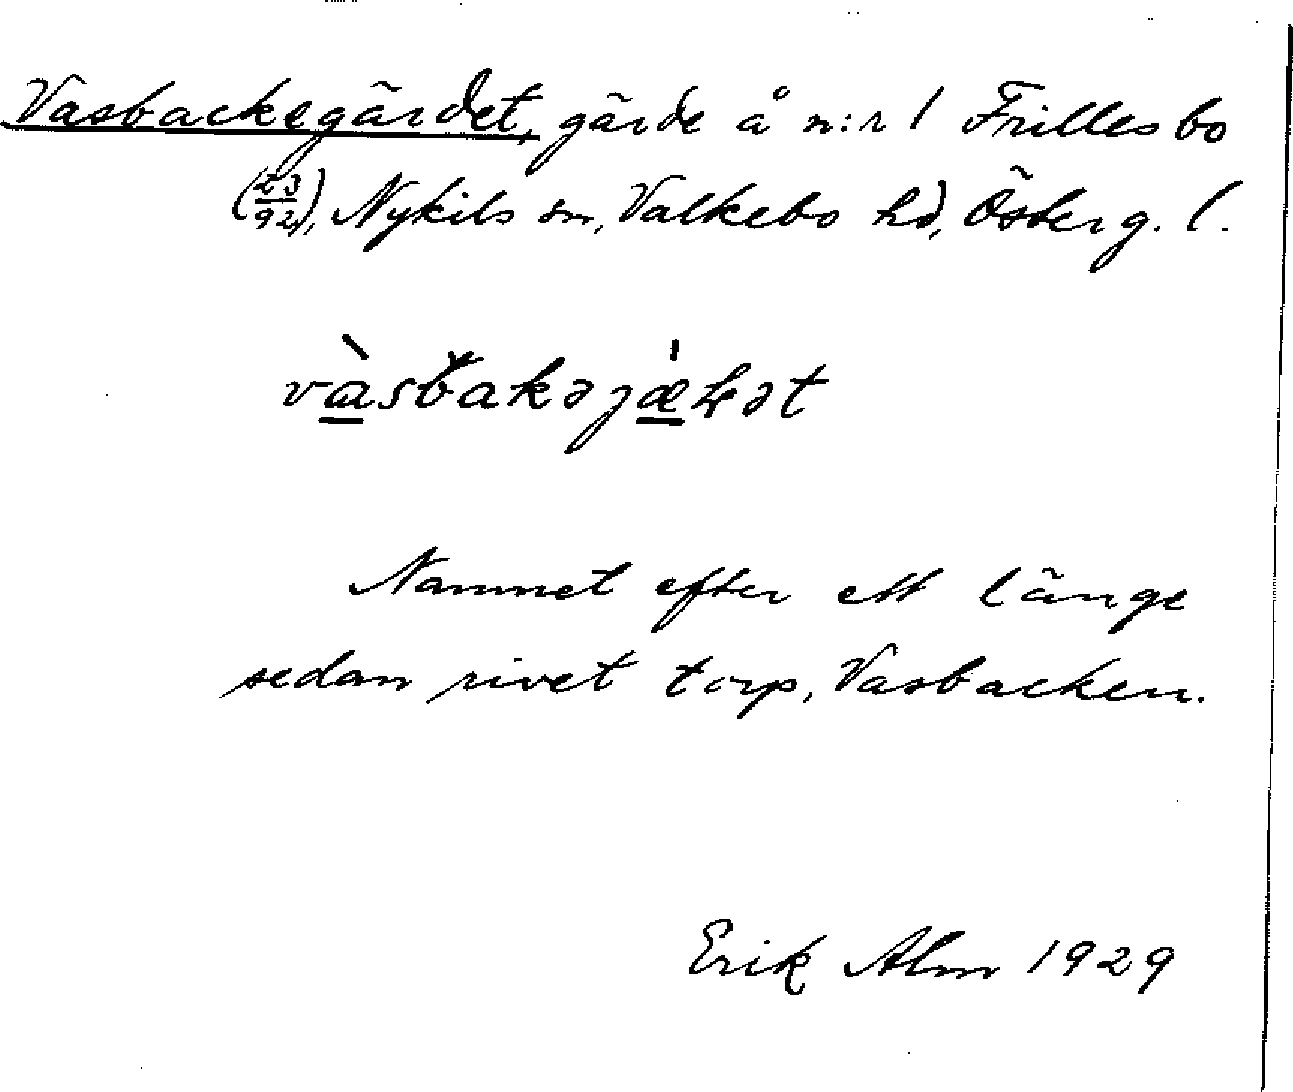 Vasbackegärdet, gärde å n:r 1 Frillesbo
(23/92), Nykils sn, Valkebo hd, Österg. l.
Namnet efter ett länge
sedan rivet torp, Vasbacken.
Erik Alm 1929